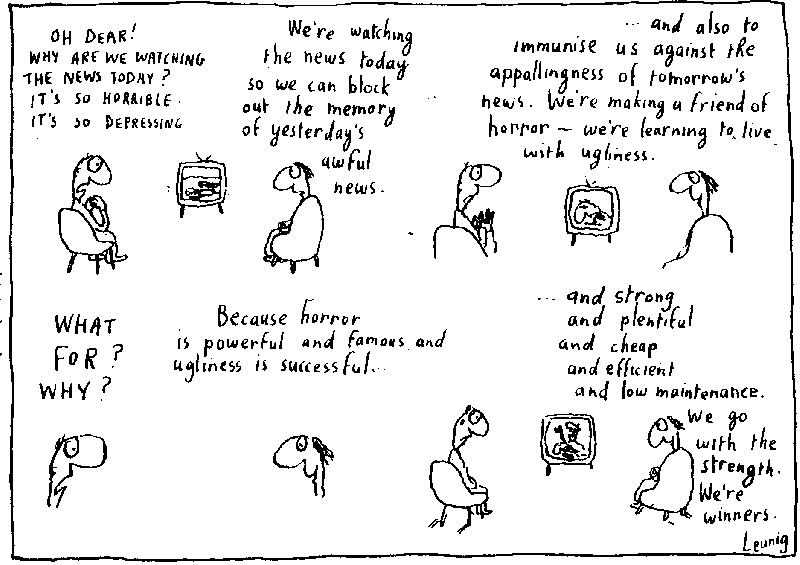 OH DEAR!
WHY ARE WE WATCHING
THE NEWS TODAY?
IT'S SO HORRIBLE.
IT'S SO DEPRESSING
We're watching
the news today
so we can block
out the memory
of yesterday's
awful
news.
... and also to
immunise us against the
appallingness of tomorrow's
news. We're making a friend of
horror – we're learning to live
with ugliness.
WHAT
FOR?
WHY?
Because horror
is powerful and famous and
ugliness is successful...
... and strong
and plentiful
and cheap
and efficient
and low maintenance.
We go
with the
strength.
We're
winners.
Leunig